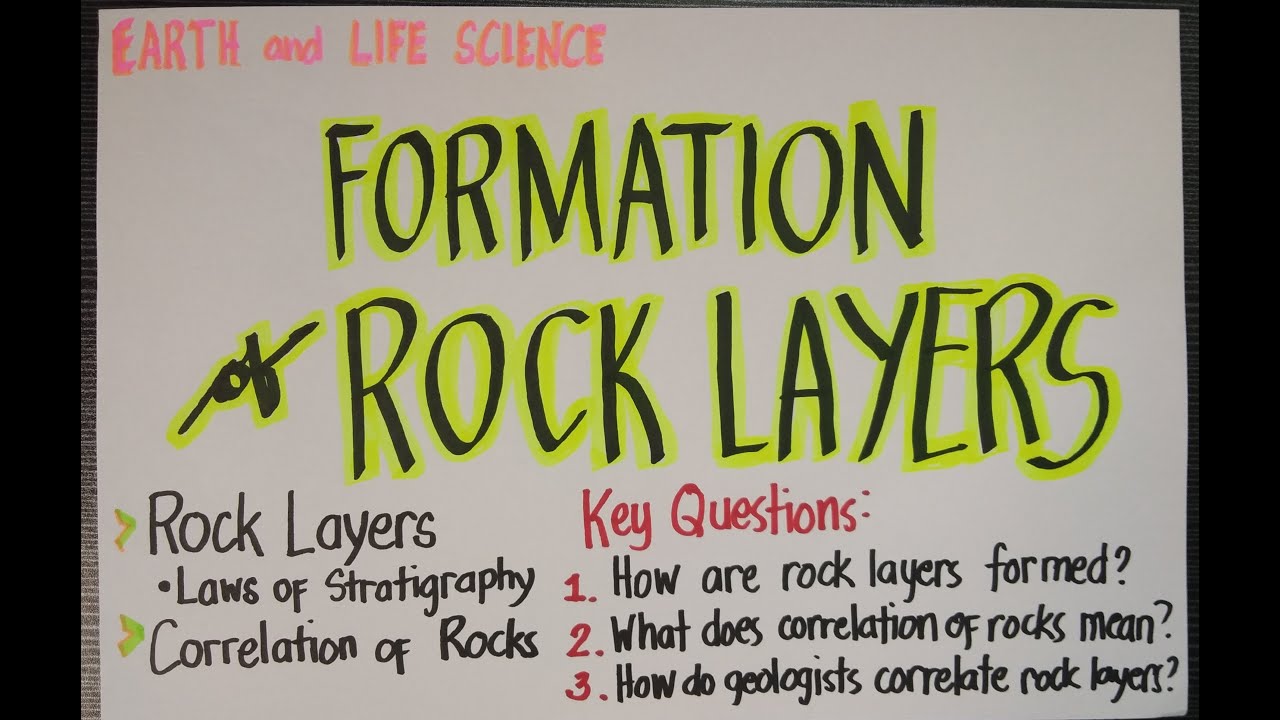 EARTH and LIFE SCIENCE
FORMATION
of ROCK LAYERS
Rock Layers
• Laws of Stratigraphy
Correlation of Rocks
Key Questions:
1. How are rock layers formed?
2. What does correlation of rocks mean?
3. How do geologists correlate rock layers?